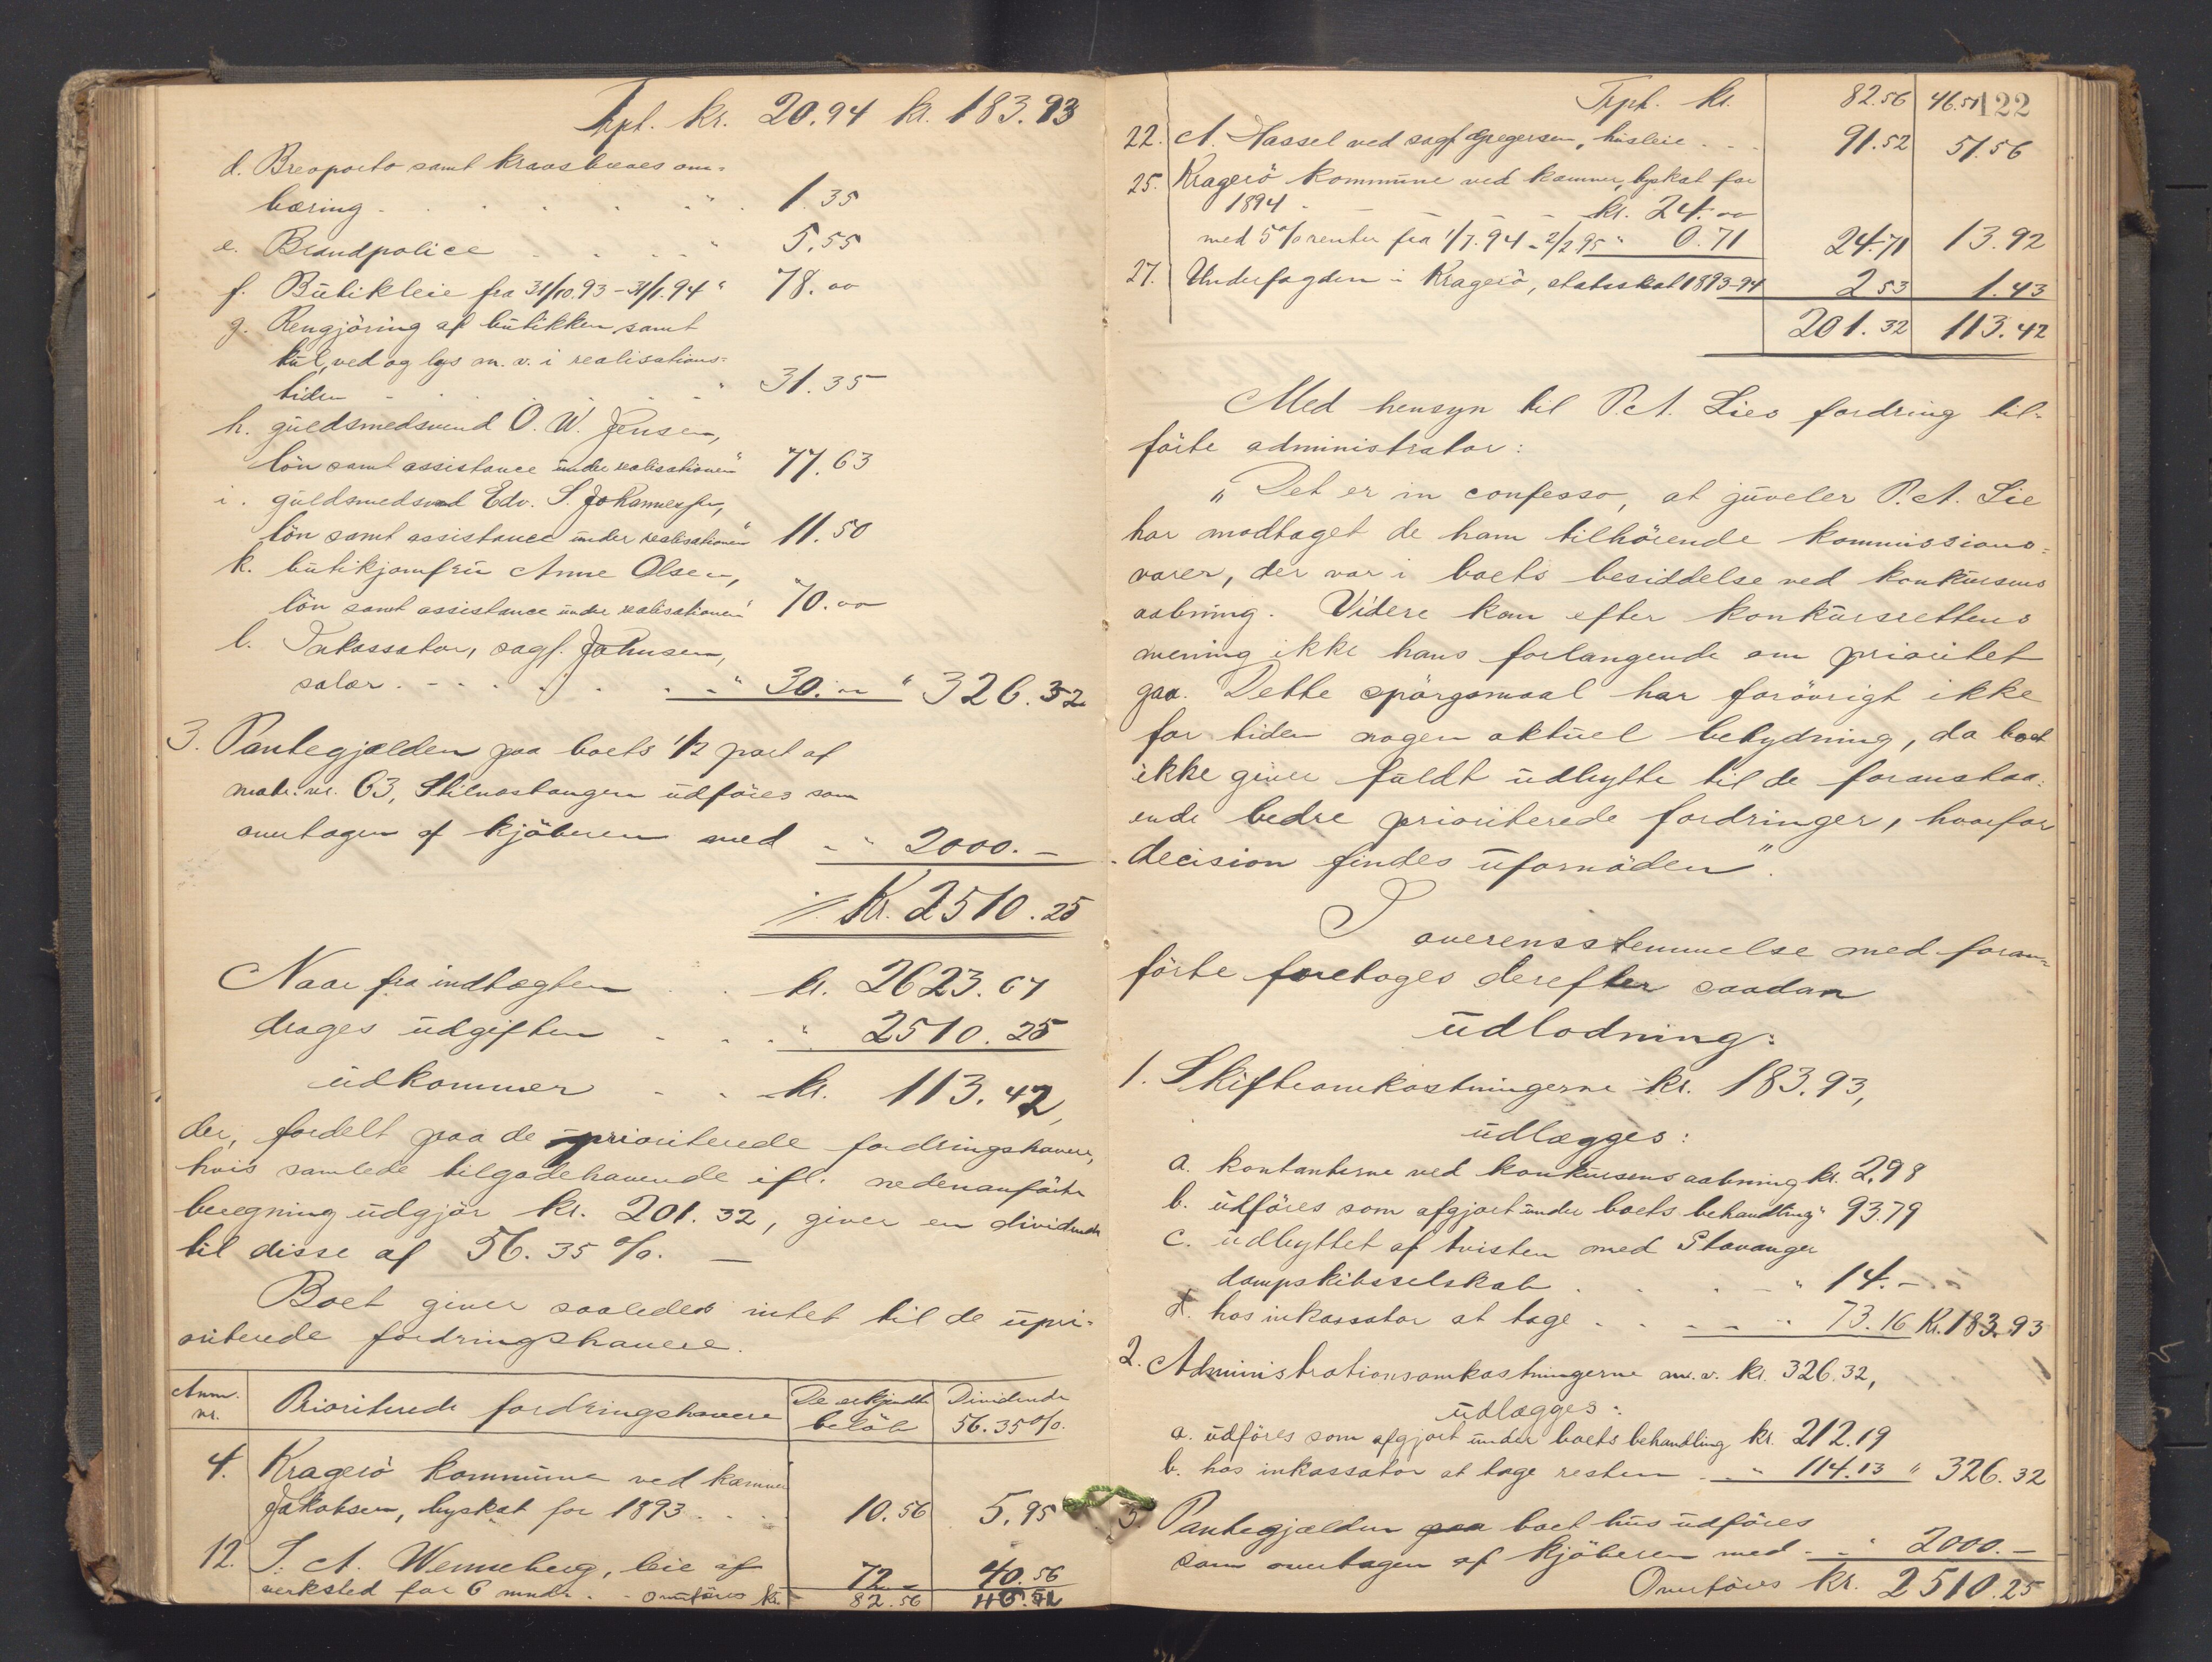 Trpt. kr. 20.94 kr. 183.93
d. Brevporto samt kravsbreves om-
bæring . . . . . " . 1.35
e. Brandpolice . . . . " 5.55
f. Butikleie fra 31/10.93 - 31/1.94 " 78.00
g. Rengjöring af butikken samt
kul, ved og lys m. v. i realisations-
tiden - . . . - - " 31.35
h. guldsmedsvend O. W. Jensen,
lön samt assistance under realisationen " 77.63
i. guldsmedsvend Edv. S. Johannessen,
lön samt assistance under realisationen " 11.50
k. butikjomfru Anne Olsen,
lön samt assistance under realisationen " 70.00
l. Inkassator, sagf. Johnsen,
salær . - - - . . . - " 30.00 " 326.32
3. Pantegjælden paa boets 1/2 part af
matr. nr. 63, Stilnestangen udföres som
overtagen af kjöberen med - " 2000. -
./. Kr. 2510.25
Naar fra indtægten . . kr. 2623.67
drages udgiften - . . " 2510.25
udkommer - . - kr. 113.42,
der, fordelt paa de prioriterede fordringshavere,
hvis samlede tilgodehavende ifl. nedenanförte
beregning udgjör kr. 201.32, giver en dividende
til disse af 56.35 %. -
Boet giver saaledes intet til de upri-
oriterede fordringshavere.
Anm. nr. | Prioriterede fordringshavere | De erkjendte belöb | Dividende 56.35 %.
4. Kragerö kommune ved kæmner
Jakobsen, byskat for 1893 . . . 10.56 5.95
12. S. A. Wenneberg, leie af
verksted for 6 mndr. 72 - 40.56
. - overföres kr. 82.56 46.51
122
Trpt. kr. 82.56 46.51
22. A. Hassel ved sagf. Gregersen, husleie . . - 91.52 51.56
25. Kragerö kommune ved kæmner, byskat for
1894 - - - - - kr. 24.00
med 5 % renter fra 1/7.94 - 2/2 95 " 0.71 24.71 13.92
27. Underfogden i Kragerö, statsskat 1893-94 2.53 1.43
201.32 113.42
Med hensyn til P. A. Lies fordring til-
förte administrator:
"Det er in confesso, at juveler P. A. Lie
har modtaget de ham tilhörende kommissions-
varer, der var i boets besiddelse ved konkursens
aabning. Videre kan efter konkursrettens
mening ikke hans forlangende om prioritet
gaa. Dette spörgsmaal har forövrigt ikke
for tiden nogen aktuel betydning, da boet
ikke giver fuldt udbytte til de foranstaa-
ende bedre prioriterede fordringer, hvorfor
decision findes ufornöden".
I overensstemmelse med foran-
förte foretages derefter saadan
udlodning:
1. Skifteomkostningerne kr. 183.93,
udlægges:
a. kontanterne ved konkursens aabning kr. 2.98
b. udföres som afgjort under boets behandling " 93.79
c. udbyttet af tvisten med Stavanger
dampskibsselskab . . . - " 14. -
d. hos inkassator at tage . - - - - " 73.16 Kr. 183.93
2. Administrationsomkostningerne m. v. kr. 326.32,
udlægges:
a. udföres som afgjort under boets behandling kr. 212.19
b. hos inkassator at tage resten . - " 114.13 " 326.32
3. Pantegjælden paa boet hus udföres
som overtagen af kjöberen med - - " 2000. -
Overföres kr. 2510.25